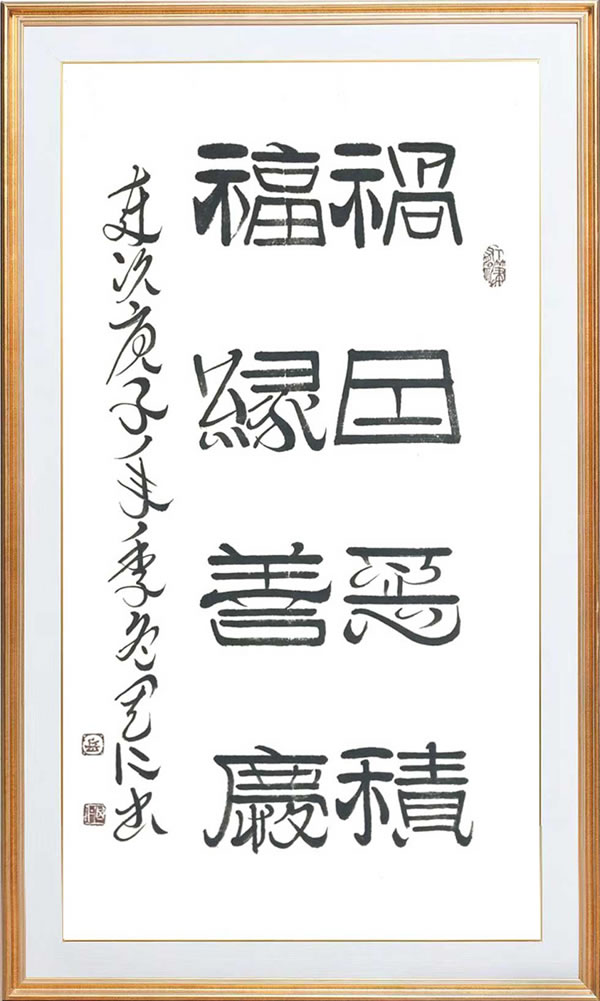 禍因惡積
福緣善慶
歲次庚子年季冬仁书